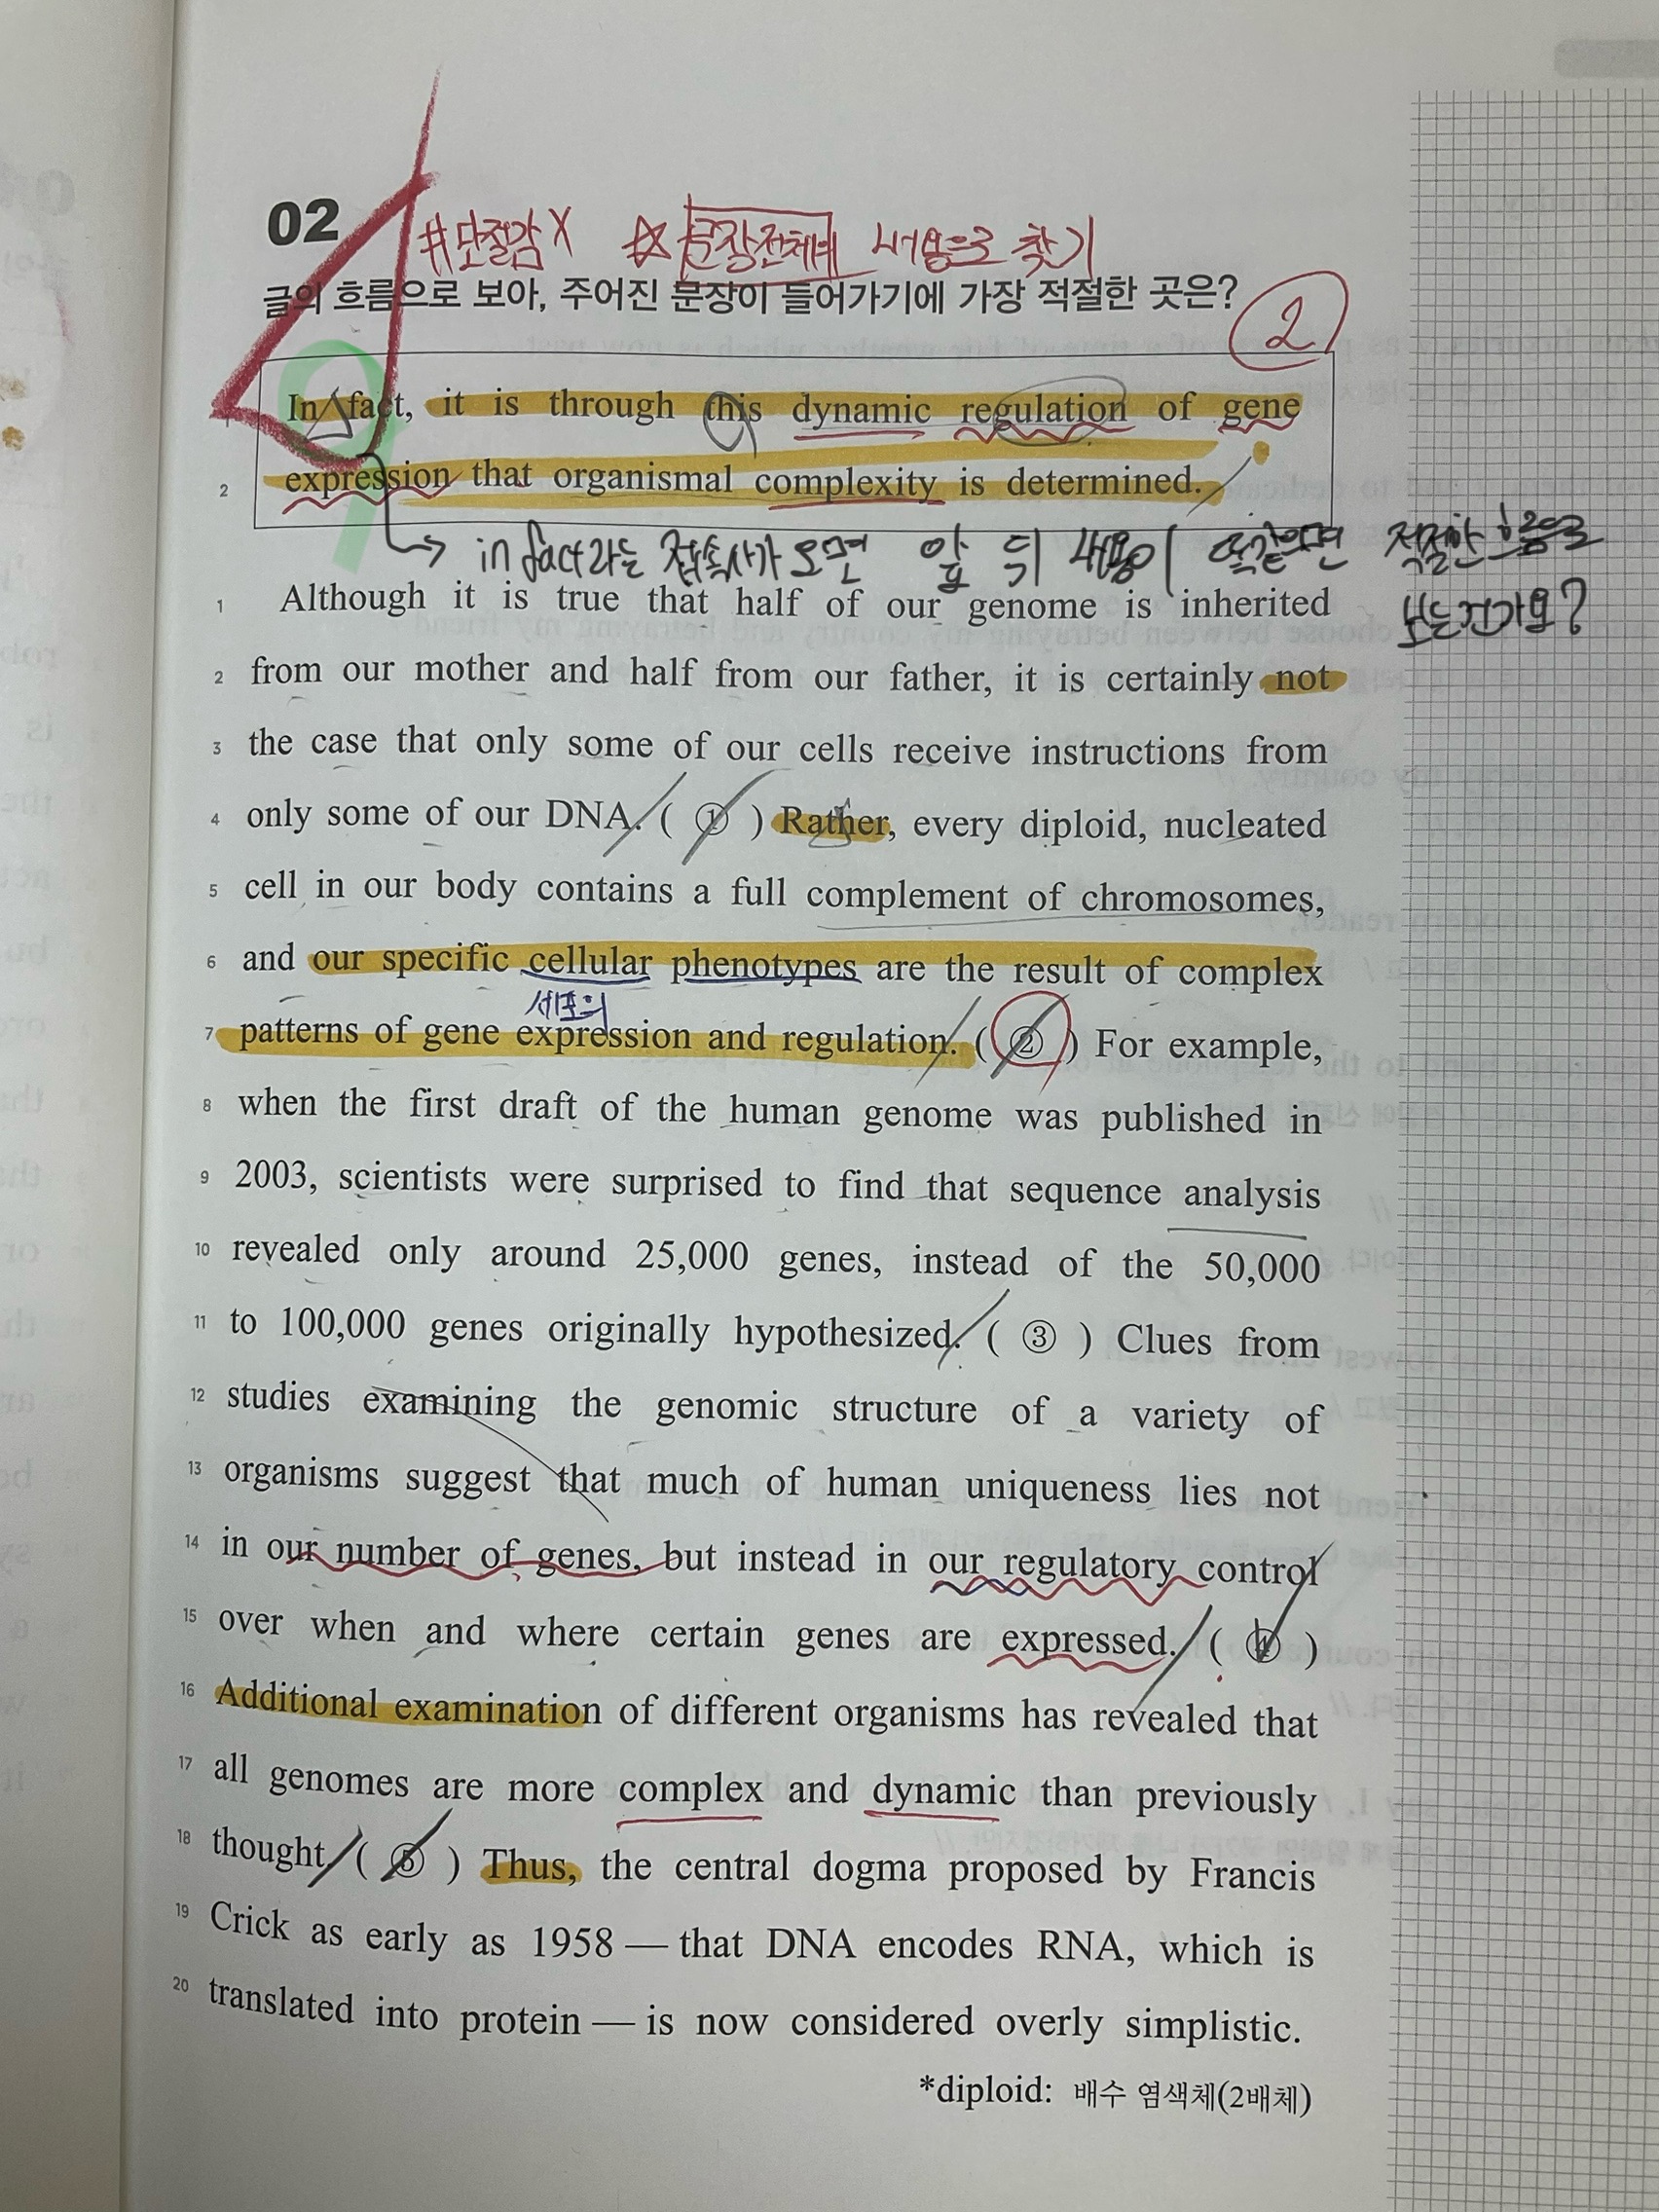 02
#단절감X ☆문장전체 내용으로 찾기
글의 흐름으로 보아, 주어진 문장이 들어가기에 가장 적절한 곳은?
2
1 In fact, it is through this dynamic regulation of gene
2 expression that organismal complexity is determined.
→ in fact라는 접속사가 오면 앞 뒤 내용이 똑같으면 적절한 흐름으로
보는건가요?
1 Although it is true that half of our genome is inherited
2 from our mother and half from our father, it is certainly not
3 the case that only some of our cells receive instructions from
4 only some of our DNA. ( ① ) Rather, every diploid, nucleated
5 cell in our body contains a full complement of chromosomes,
6 and our specific cellular phenotypes are the result of complex
세포의
7 patterns of gene expression and regulation. ( ② ) For example,
8 when the first draft of the human genome was published in
9 2003, scientists were surprised to find that sequence analysis
10 revealed only around 25,000 genes, instead of the 50,000
11 to 100,000 genes originally hypothesized. ( ③ ) Clues from
12 studies examining the genomic structure of a variety of
13 organisms suggest that much of human uniqueness lies not
14 in our number of genes, but instead in our regulatory control
15 over when and where certain genes are expressed. ( ④ )
16 Additional examination of different organisms has revealed that
17 all genomes are more complex and dynamic than previously
18 thought. ( ⑤ ) Thus, the central dogma proposed by Francis
19 Crick as early as 1958 — that DNA encodes RNA, which is
20 translated into protein — is now considered overly simplistic.
*diploid: 배수 염색체(2배체)